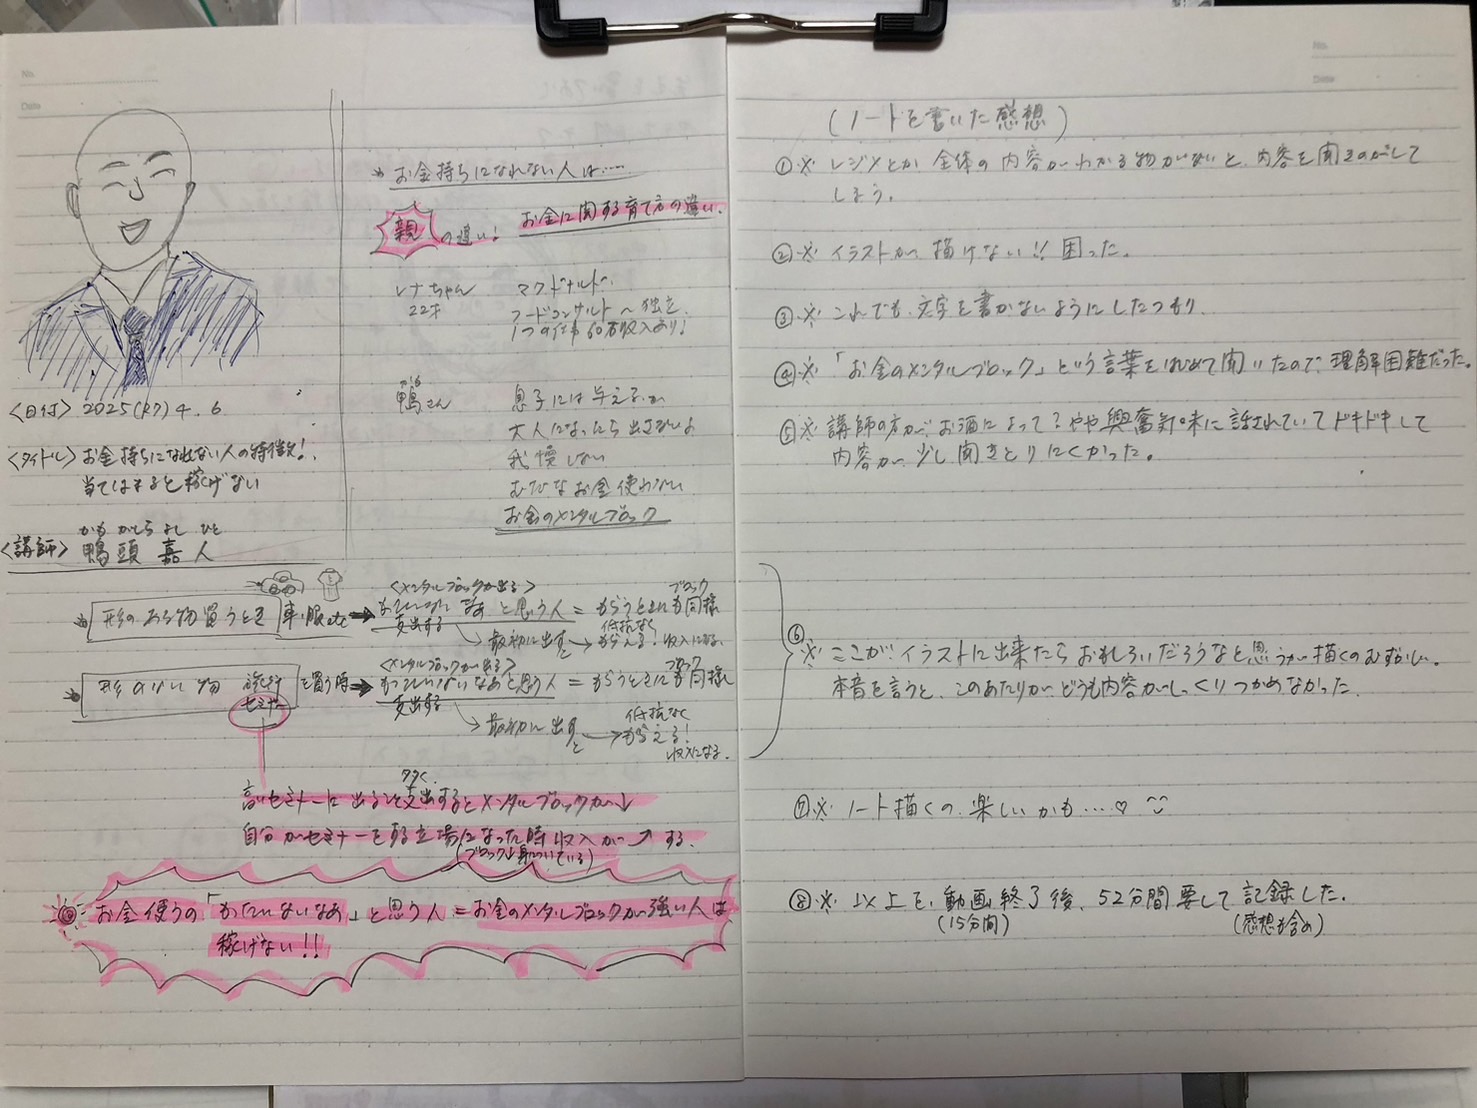 No.
Date
<日付> 2025(R7) 4. 6
<タイトル> お金持ちになれない人の特徴!
当てはまると稼げない
かも がしら よし ひと
<講師> 鴨頭 嘉人
※ お金持ちになれない人は……
親の違い! お金に関する育て方の違い.
レナちゃん マクドナルド
22才 フードコンサルト〜独立.
1つの仕事60万収入あり!
かも
鴨さん 息子には与えるが
大人になったら出さないよ
我慢しない
むだなお金使わない
お金のメンタルブロック
<メンタルブロックが出る> ブロック
形のある物買うとき 車・服etc → もったいないなあと思う人 = もらうときにも同様
支出する → 最初に出すと → 抵抗なくもらえる! 収入になる.
<メンタルブロックが出る> ブロック
形のない物 旅行 セミナー を買う時 → もったいないなあと思う人 = もらうときにも同様
支出する → 最初に出すと → 抵抗なくもらえる! 収入になる.
多く
高いセミナーに出るなど支出するとメンタルブロックが↓
自分がセミナーをする立場になった時収入が↗する.
(ブロック↓身についている)
お金使うの「もったいないなあ」と思う人=お金のメンタルブロックが強い人は
稼げない!!
No.
Date
(ノートを書いた感想)
①※ レジメとか全体の内容がわかる物がないと、内容を聞きのがして
しまう。
②※ イラストが描けない!! 困った。
③※ これでも、文字を書かないようにしたつもり.
④※「お金のメンタルブロック」という言葉をはじめて聞いたので、理解困難だった。
⑤※ 講師の方が、お酒によって?やや興奮気味に話されていてドキドキして
内容が、少し聞きとりにくかった。
⑥
※ ここが、イラストに出来たらおもしろいだろうなと思うが描くのむずかしい.
本音を言うと、このあたりが、どうも内容がしっくりつかめなかった.
⑦※ ノート描くの、楽しいかも…♡
⑧※ 以上を、動画終了後、52分間要して記録した.
(15分間) (感想も含め)